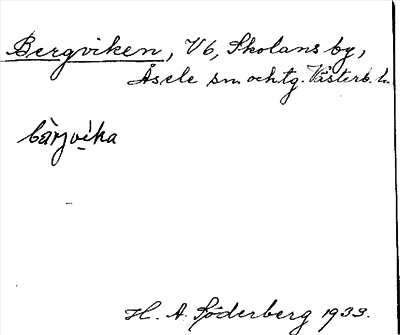 Bergviken, V6, Skolans by,
Åsele sn. och tg. Västerb. l.
bärjvika
H. A. Söderberg 1933.